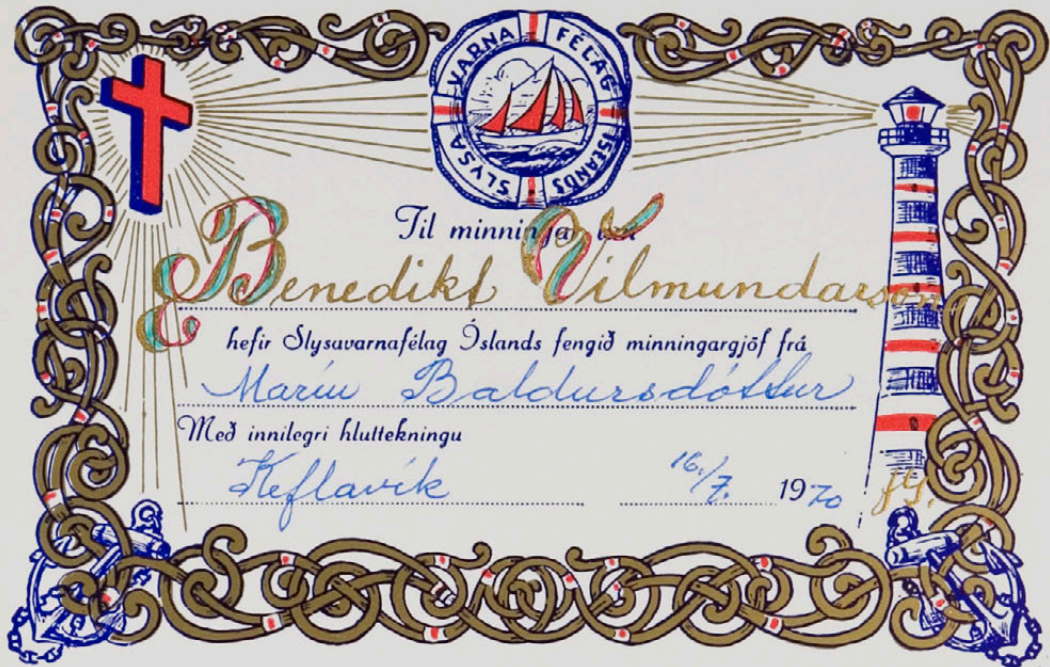 SLYSAVARNAFÉLAG ÍSLANDS
Til minningar um
Benedikt Vilmundarson
hefir Slysavarnafélag Íslands fengið minningargjöf frá
Maríu Baldursdóttur
Með innilegri hluttekningu
Keflavík 16./7. 1970